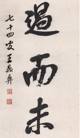 過而未
七十四叟王